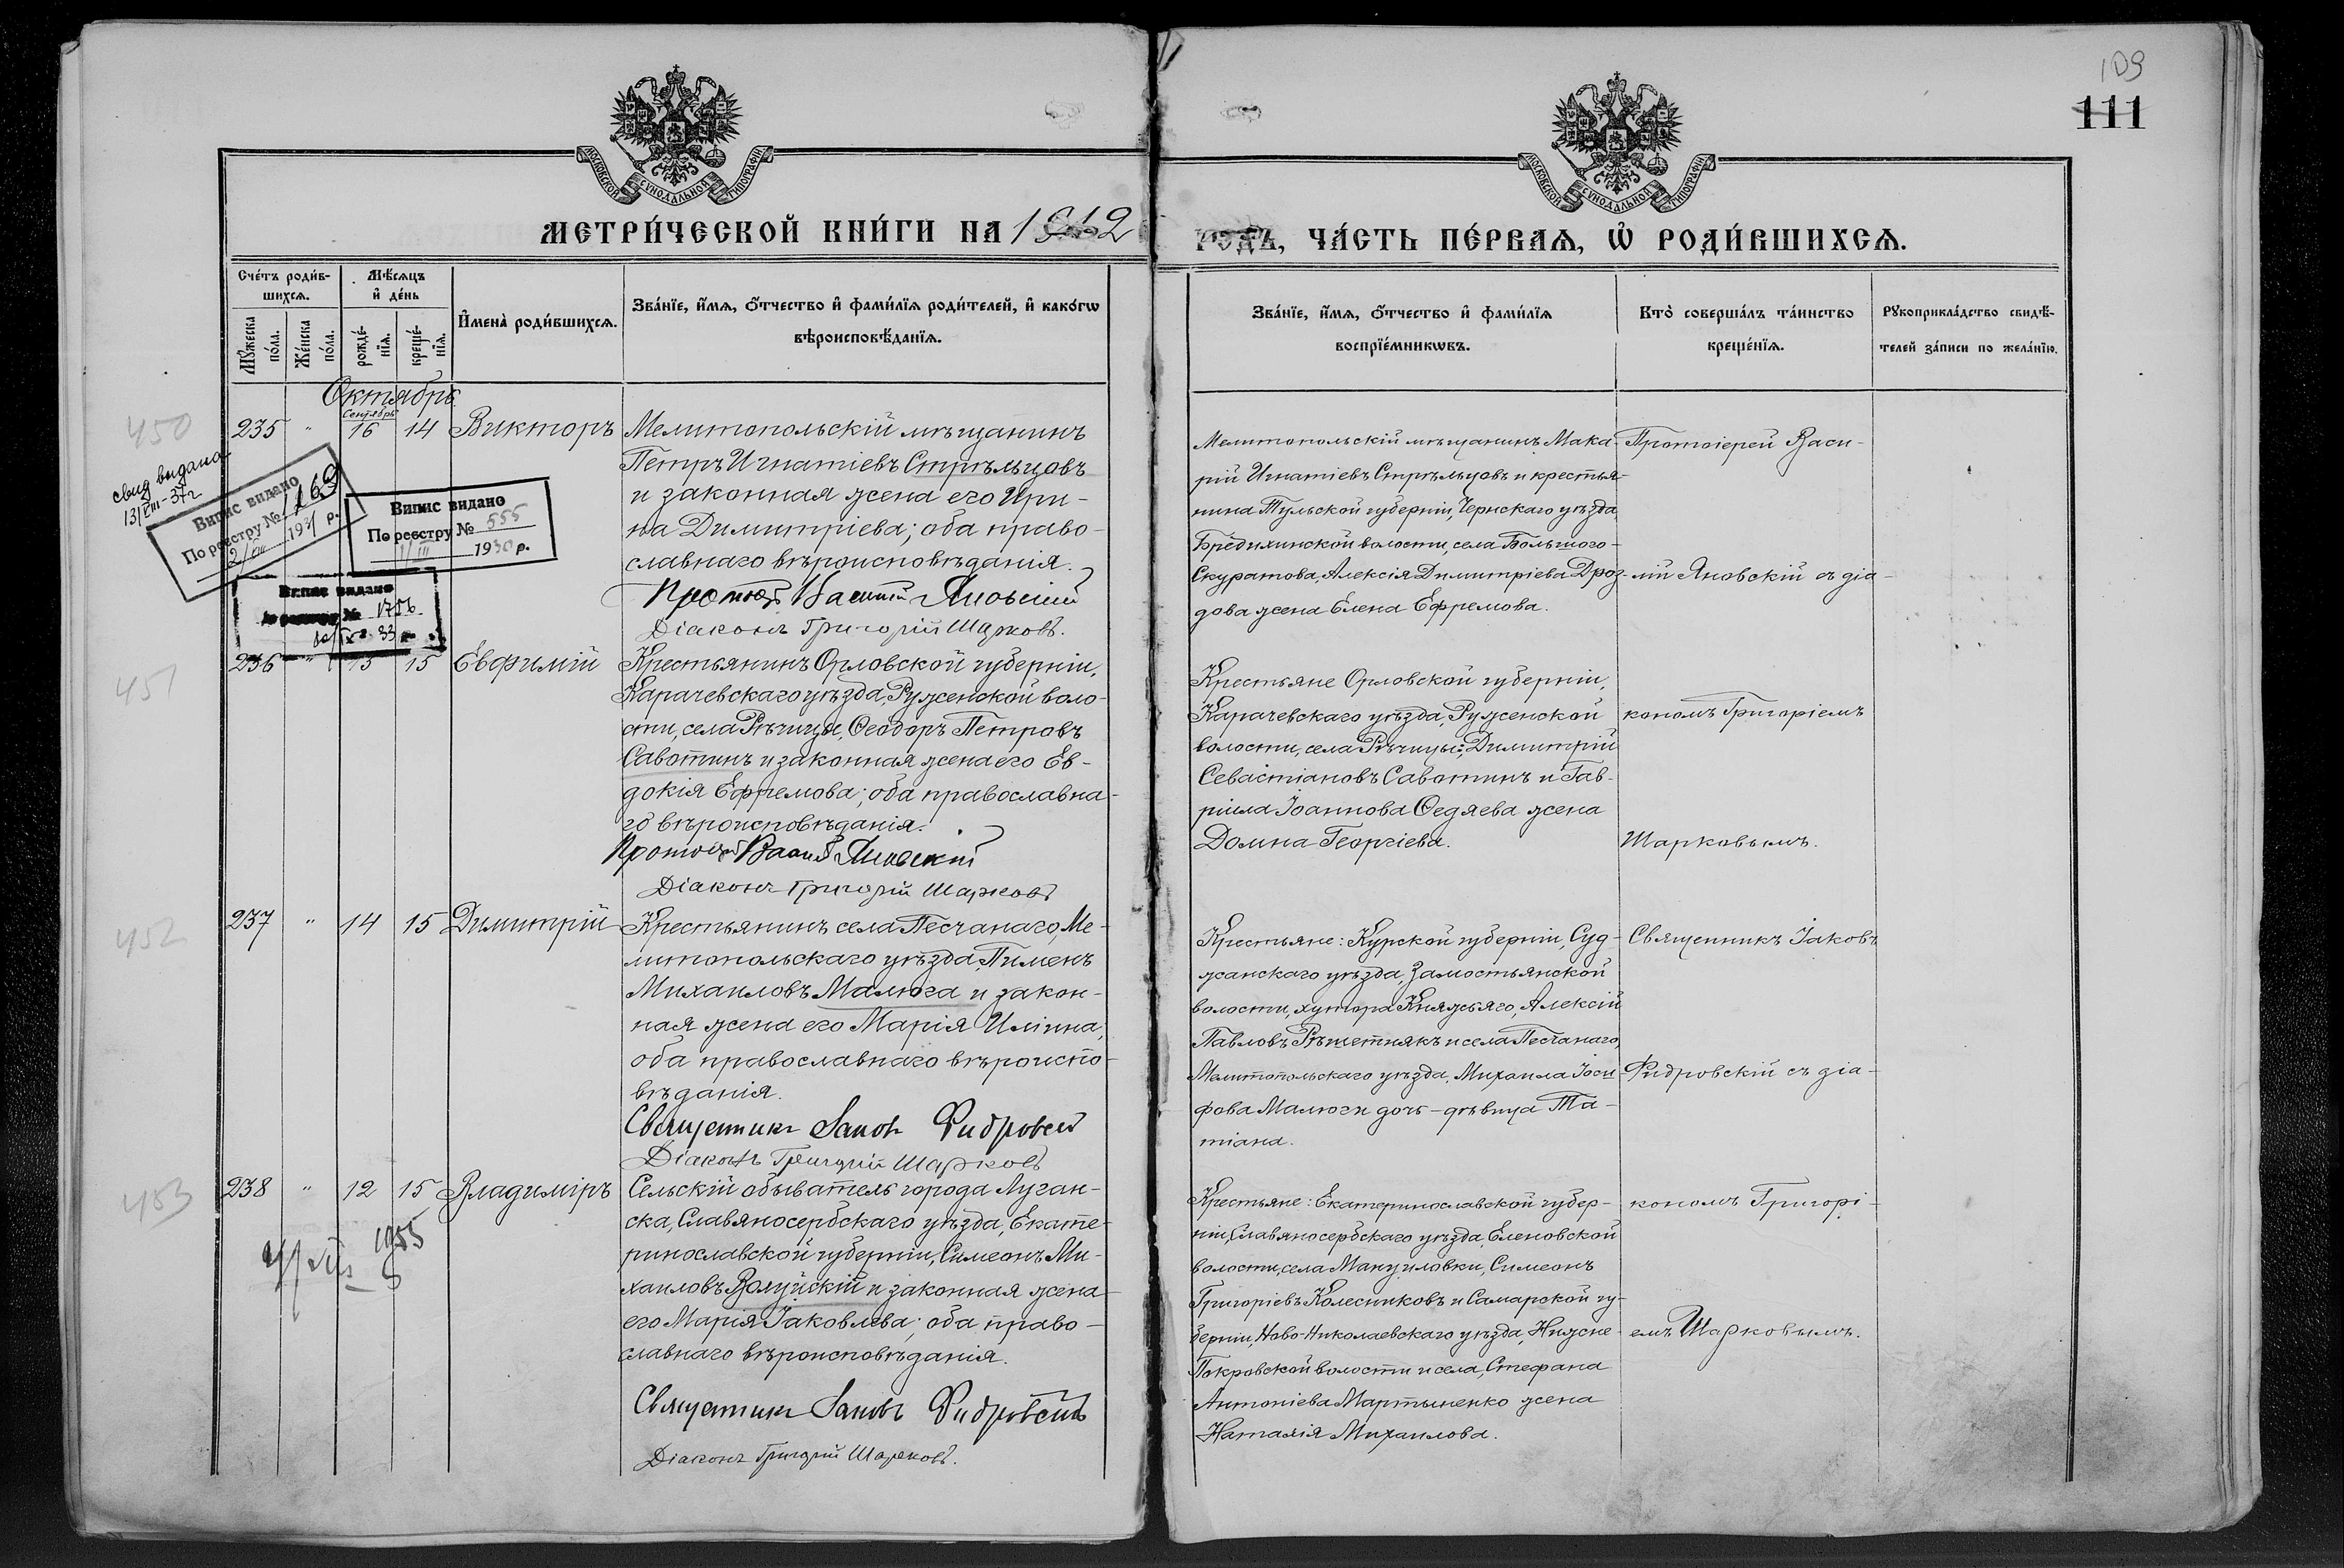 109
111
МОСКОВСКОЙ СѴНОДАЛЬНОЙ ТИПОГРАФІИ
МОСКОВСКОЙ СѴНОДАЛЬНОЙ ТИПОГРАФІИ
МЕТРИ́ЧЕСКОЙ КНИ́ГИ НА 1912
ГОДЪ, ЧА́СТЬ ПЕ́РВАѦ, Ѡ҆ РОДИ́ВШИХСѦ.
Сче́тъ роди́в-
шихсѧ.
Мѣ́сѧцъ
и҆ де́нь
Мꙋ́жеска
по́ла.
Же́нска
по́ла.
рожде́-
нїѧ.
креще́-
нїѧ.
И҆мена̀ роди́вшихсѧ.
Зва́нїе, и҆́мѧ, ѻ҆́тчество и҆ фами́лїѧ роди́телей, и҆ како́гѡ
вѣроисповѣ́данїѧ.
Зва́нїе, и҆́мѧ, ѻ҆́тчество и҆ фами́лїѧ
воспрїе́мникѡвъ.
Кто̀ соверша́лъ та́инство
креще́нїѧ.
Рꙋкоприкла́дство свидѣ́-
телей за́писи по жела́нїю.
Октябрь
450
235 " Сентябрь 16 14 Викторъ
Мелитопольскій мѣщанинъ
Петръ Игнатіевъ Стрѣльцовъ
и законная жена его Ири-
на Димитріева; оба право-
славнаго вѣроисповѣданія.
Протоіер Василій Яновскій
Діаконъ Григорій Шарковъ.
Мелитопольскій мѣщанинъ Мака-
рій Игнатіевъ Стрѣльцовъ и крестья-
нина Тульской губерніи, Чернскаго уѣзда,
Бредихинской волости, села Большого-
Скуратова, Алексія Димитріева Дроз-
дова жена Елена Ефремова.
Протоіерей Васи-
лій Яновскій съ діа-
свид выдана
13/VIII-37г
Випис видано
По реєстру № 169
2/VIII 1931 р.
Випис видано
По реєстру № 555
1/III 1930 р.
Випис видано
По реєстру № 1756
33
451
236 " 13 15 Евфимій
Крестьянинъ Орловской губерніи,
Карачевскаго уѣзда, Руженской воло-
сти, села Рѣчицы, Ѳеодоръ Петровъ
Савотинъ и законная жена его Ев-
докія Ефремова; оба православна-
го вѣроисповѣданія.
Протоіер Васил Яновскій
Діаконъ Григорій Шарковъ
Крестьяне Орловской губерніи,
Карачевскаго уѣзда, Руженской
волости, села Рѣчицы: Димитрій
Севастіановъ Савотинъ и Гав-
ріила Іоаннова Ѳедяева жена
Домна Георгіева.
кономъ Григоріемъ
Шарковымъ.
452
237 " 14 15 Димитрій
Крестьянинъ села Песчанаго, Ме-
литопольскаго уѣзда, Пименъ
Михаиловъ Малюга и закон-
ная жена его Марія Иліина,
оба православнаго вѣроиспо-
вѣданія.
Священникъ Іаковъ Фидровскій
Діаконъ Григорій Шарковъ
Крестьяне: Курской губерніи, Суд-
жанскаго уѣзда, Замостьянской
волости, хутора Княжьяго, Алексій
Павловъ Рѣшетнякъ и села Песчанаго,
Мелитопольскаго уѣзда, Михаила Іоси-
фова Малюги дочь-дѣвица Та-
тіана.
Священникъ Іаковъ
Фидровскій съ діа-
453
238 " 12 15 Владиміръ
1955
Сельскій обыватель города Луган-
ска, Славяносербскаго уѣзда, Екате-
ринославской губерніи, Симеонъ Ми-
хаиловъ Волуйскій и законная жена
его Марія Іаковлева; оба право-
славнаго вѣроисповѣданія.
Священникъ Іаковъ Фидровскій
Діаконъ Григорій Шарковъ.
Крестьяне: Екатеринославской губер-
ніи, Славяносербскаго уѣзда, Еленовской
волости, села Мануиловки, Симеонъ
Григоріевъ Колесниковъ и Самарской гу-
берніи, Ново-Николаевскаго уѣзда, Нижне-
Покровской волости и села, Стефана
Антоніева Мартыненко жена
Наталія Михаилова.
кономъ Григорі-
емъ Шарковымъ.